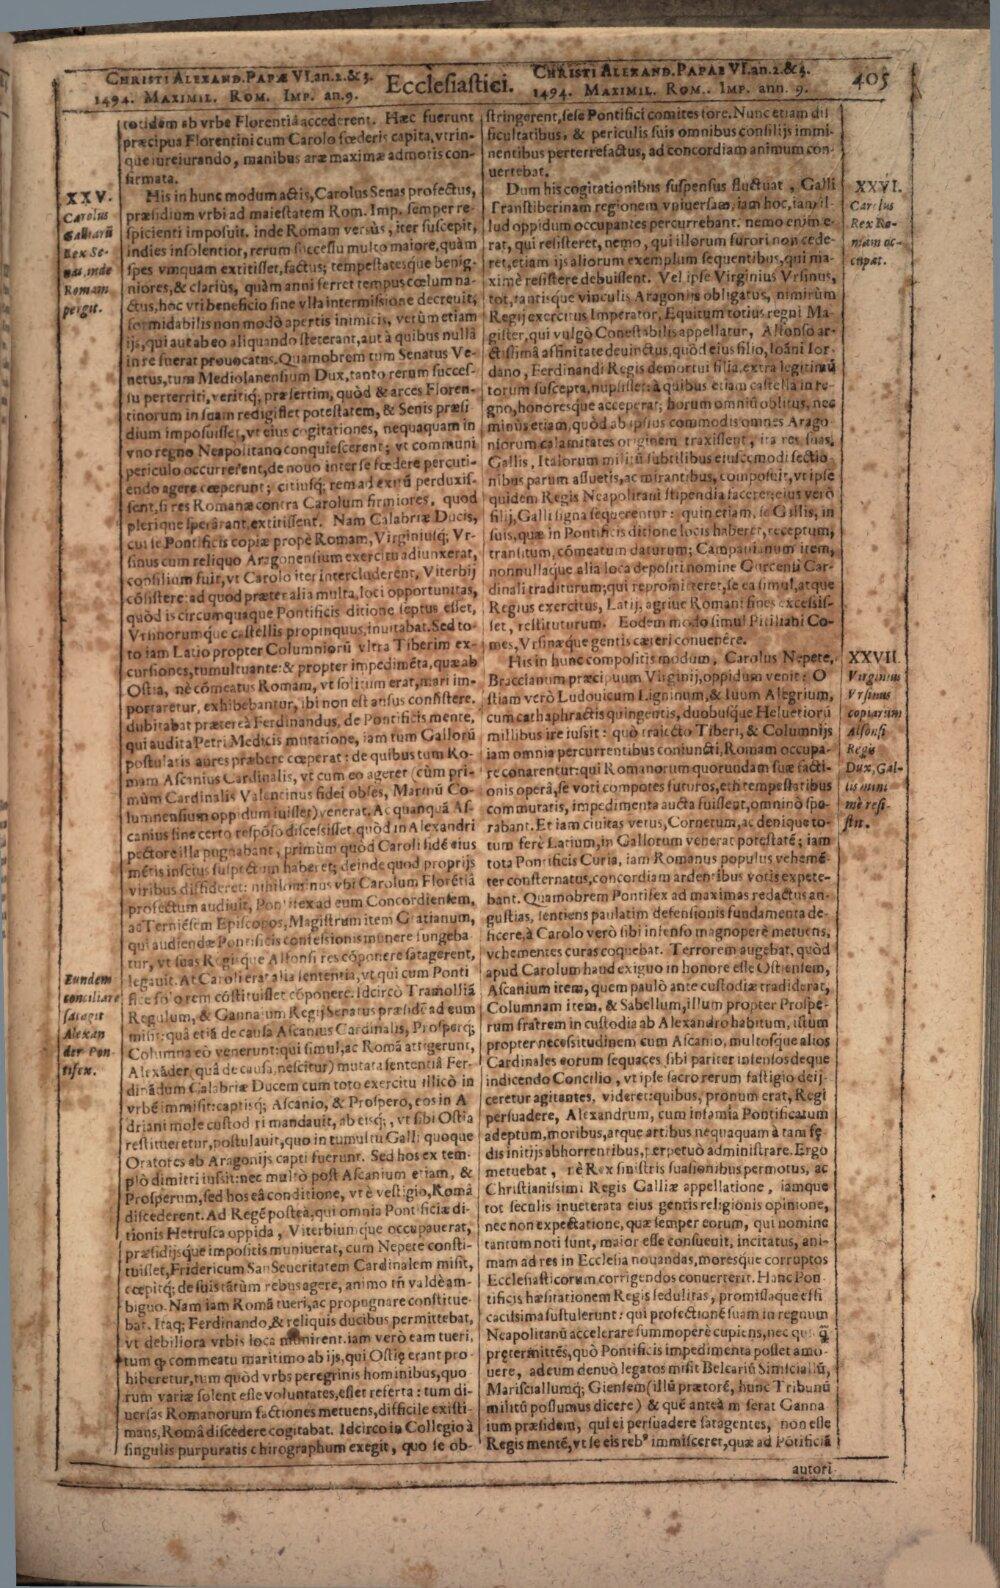 CHRISTI ALEXAND. PAPÆ VI. an. 2. & 3.
1494. MAXIMIL. ROM. IMP. an. 9.
Ecclesiastici.
CHRISTI ALEXAND. PAPAE VI. an. 2. & 3.
1494. MAXIMIL. ROM. IMP. ann. 9.
405
totidem ab vrbe Florentiâ accederent. Hæc fuerunt
præcipua Florentini cum Carolo fœderis capita, vtrin-
que iureiurando, manibus aræ maximæ admotis con-
firmata.
XXV.
Carolus
Galliarũ
Rex Se-
nas, inde
Romam
pergit.
His in hunc modum actis, Carolus Senas profectus,
præsidium vrbi ad maiestatem Rom. Imp. semper re-
spicienti imposuit. inde Romam versùs, iter suscepit,
indies insolentior, rerum successu multo maiore, quàm
spes vmquam extitisset, factus; tempestatesque benig-
niores, & clariùs, quàm anni ferret tempus cœlum na-
ctus, hoc vti beneficio sine vlla intermissione decreuit,
formidabilis non modò apertis inimicis, verùm etiam
ijs, qui aut ab eo aliquando steterant, aut à quibus nullâ
in re fuerat prouocatus. Quamobrem tum Senatus Ve-
netus, tum Mediolanensium Dux, tanto rerum succes-
su perterriti, veritiq; præsertim, quòd & arces Floren-
tinorum in suam redigisset potestatem, & Senis præsi-
dium imposuisset, vt eius cogitationes, nequaquam in
vno regno Neapolitano conquiescerent; vt communi
periculo occurrerent, de nouo inter se fœdere percuti-
endo agere cœperunt; citiusq; rem ad exitũ perduxis-
sent, si res Romanæ contra Carolum firmiores, quod
plerique sperârant, extitissent. Nam Calabriæ Ducis,
cui se Pontificis copiæ propè Romam, Virginiusq; Vr-
sinus cum reliquo Aragonensium exercitu adiunxerat,
consilium fuit, vt Carolo iter intercluderent, Viterbij
cõsistere: ad quod præter alia multa, loci opportunitas,
quòd is circumquaque Pontificis ditione septus esset,
Vrsinorumque castellis propinquus, inuitabat. Sed to-
to iam Latio propter Columniorũ vltra Tiberim ex-
cursiones, tumultuante: & propter impedimẽta, quæ ab
Ostia, nè cõmeatus Romam, vt solitum erat, mari im-
portaretur, exhibebantur, ibi non est ausus consistere.
dubitabat prætereà Ferdinandus, de Pontificis mente,
qui audita Petri Medicis mutatione, iam tum Gallorũ
postulatis aures præbere cœperat: de quibus tum Ro-
mam Ascanius Cardinalis, vt cum eo ageret (cùm pri-
mùm Cardinalis Valentinus fidei obses, Marinũ Co-
lumnensium oppidum iuisset) venerat. Ac quanquã As-
canius sine certo respõso discessisset, quòd in Alexandri
pectore illa pugnabant, primùm quòd Caroli fidẽ eius
mẽtis inscius suspectam haberet; deinde quod proprijs
viribus diffideret: nihilominus vbi Carolum Florẽtiâ
profectum audiuit, Pontifex ad eum Concordiensem,
ac Terniẽsem Episcopos, Magistrum item Gratianum,
qui audiendæ Pontificis confessionis munere fungeba-
tur, vt suas Regisque Alfonsi res cõponere satagerent,
Eundem
conciliare
satagit
Alexan
der Pon-
tifex.
legauit. At Caroli erat alia sententia, vt qui cum Ponti
fice solo rem cõstituisset cõponere. Idcircò Tramollîã
Regulum, & Gannaium Regij Senatus præsidẽ ad eum
misit: quâ etiã de causa Ascanius Cardinalis, Prosperq;
Columna eò venerunt: qui simul, ac Romã attigerunt,
Alexãder (quâ de causa, nescitur) mutata sententiâ Fer-
dinãdum Calabriæ Ducem cum toto exercitu illicò in
vrbẽ immisit: captisq; Ascanio, & Prospero, eos in A
driani mole custodiri mandauit, ab eisq;, vt sibi Ostia
restitueretur, postulauit, quo in tumultu Galli quoque
Oratores ab Aragonijs capti fuerunt. Sed hos ex tem-
plò dimitti iussit: nec multò post Ascanium etiam, &
Prosperum, sed hos eâ conditione, vt è vestigio, Româ
discederent. Ad Regẽ posteà, qui omnia Pontificiæ di-
tionis Hetrusca oppida, Viterbiumque occupauerat,
præsidijsque impositis muniuerat, cum Nepete consti-
tuisset, Fridericum SanSeueritatem Cardinalem misit,
cœpitq; de suis tãtùm rebus agere, animo tñ valdè am-
biguo. Nam iam Româ tueri, ac propugnare constitue-
bat. Itaq; Ferdinando, & reliquis ducibus permittebat,
vt debiliora vrbis loca munirent. iam verò eam tueri,
tum q; commeatu maritimo ab ijs, qui Ostiȩ erant pro-
hiberetur, tum quòd vrbs peregrinis hominibus, quo
rum variæ solent esse voluntates, esset referta: tum di-
uersas Romanorum factiones metuens, difficile existi-
mans, Româ discedere cogitabat. Idcirco in Collegio à
singulis purpuratis chirographum exegit, quo se ob-
stringerent, sese Pontifici comites fore. Nunc etiam dif
ficultatibus, & periculis suis omnibus consilijs immi-
nentibus perterrefactus, ad concordiam animum con-
uertebat.
XXVI.
Carolus
Rex Ro-
mam oc-
cupat.
Dum his cogitationibus suspensus fluctuat, Galli
Transtiberinam regionem vniuersam, iam hoc, iam il-
lud oppidum occupantes percurrebant. nemo enim e-
rat, qui resisteret, nemo, qui illorum furori non cede-
ret, etiam ijs aliorum exemplum sequentibus, qui ma-
ximè resistere debuissent. Vel ipse Virginius Vrsinus,
tot, tantisque vinculis Aragonijs obligatus, nimirùm
Regij exercitus Imperator, Equitum totius regni Ma-
gister, qui vulgò Conestabilis appellatur, Alfonso ar-
ctissimâ affinitate deuinctus, quòd eius filio, Ioãni Ior-
dano, Ferdinandi Regis demortui filia, extra legitimũ
torum suscepta, nupsisset: à quibus etiam castella in re-
gno, honoresque acceperat; horum omniũ oblitus, nec
minùs etiam, quòd ab ipsius commodis omnes Arago
niorum calamitates originem traxissent, ita res suas,
Gallis, Italorum militũ subtilibus eiuscemodi sectio-
nibus parum assuetis, ac mirantibus, composuit, vt ipse
quidem Regis Neapolitani stipendia faceret; eius verò
filij, Galli signa sequerentur: quin etiam, se Gallis, in
suis, quæ in Pontificis ditione locis haberet, receptum,
transitum, cõmeatum daturum; Campanianum item,
nonnullaque alia loca depositi nomine Gurcensi Car-
dinali traditurum; qui repromitteret, se ea simul, atque
Regius exercitus, Latij, agriue Romani fines excessis-
set, restituturum. Eodem modo simul Pitiliani Co-
mes, Vrsinæque gentis cæteri conuenêre.
XXVII.
Virginius
Vrsinus
copiarum
Alfonsi
Regis
Dux, Gal-
lis mini
mè resi-
stit.
His in hunc compositis modum, Carolus Nepete,
Braccianum præcipuum Virginij, oppidum venit: O
stiam verò Ludouicum Ligninum, & Iuum Alegrium,
cum cathaphractis quingentis, duobusque Heluetiorũ
millibus ire iussit: quò traiecto Tiberi, & Columnijs
iam omnia percurrentibus coniuncti, Romam occupa-
re conarentur: qui Romanorum quorundam suæ facti-
onis operâ, se voti compotes futuros, etsi tempestatibus
commutatis, impedimenta aucta fuissent, omninò spe-
rabant. Et iam ciuitas vetus, Cornetum, ac denique to-
tum ferè Latium, in Gallorum venerat potestatẽ; iam
tota Pontificis Curia, iam Romanus populus vehemẽ-
ter consternatus, concordiam ardentibus votis expete-
bant. Quamobrem Pontifex ad maximas redactus an-
gustias, sentiens paulatim defensionis fundamenta de-
ficere, à Carolo verò sibi infenso magnoperè metuens,
vehementes curas coquebat. Terrorem augebat, quòd
apud Carolum haud exiguo in honore esse Ostiensem,
Ascanium item, quem paulò ante custodiæ tradiderat,
Columnam item, & Sabellum, illum propter Prospe-
rum fratrem in custodia ab Alexandro habitum, istum
propter necessitudinem cum Ascanio, multosque alios
Cardinales eorum sequaces, sibi pariter infensos deque
indicendo Concilio, vt ipse sacro rerum fastigio deij-
ceretur agitantes, videret: quibus, pronum erat, Regi
persuadere, Alexandrum, cum infamia Pontificatum
adeptum, moribus, atque artibus nequaquam à tam fȩ
dis initijs abhorrentibus, perpetuò administrare. Ergo
metuebat, nè Rex sinistris suasionibus permotus, ac
Christianissimi Regis Galliæ appellatione, iamque
tot seculis inueterata eius gentis religionis opinione,
nec non expectatione, quæ semper eorum, qui nomine
tantùm noti sunt, maior esse consueuit, incitatus, ani-
mam ad res in Ecclesia nouandas, moresque corruptos
Ecclesiasticorum corrigendos conuerterit. Hanc Pon-
tificis hæsitationem Regis sedulitas, promissaque effi
cacissima sustulerunt: qui profectionẽ suam in regnum
Neapolitanũ accelerare summoperè cupiens, nec
prȩtermittẽs, quò Pontificis impedimenta posset amo-
uere, ad eum denuò legatos misit Belcariũ Simsciallũ,
Marisciallumq; Giensem (illũ prætorẽ, hunc Tribunũ
militũ possumus dicere) & quẽ anteà miserat Ganna
ium præsidem, qui ei persuadere satagentes, non esse
Regis mentẽ, vt se eis reb⁹ immisceret, quæ ad Põtificiã
autori-